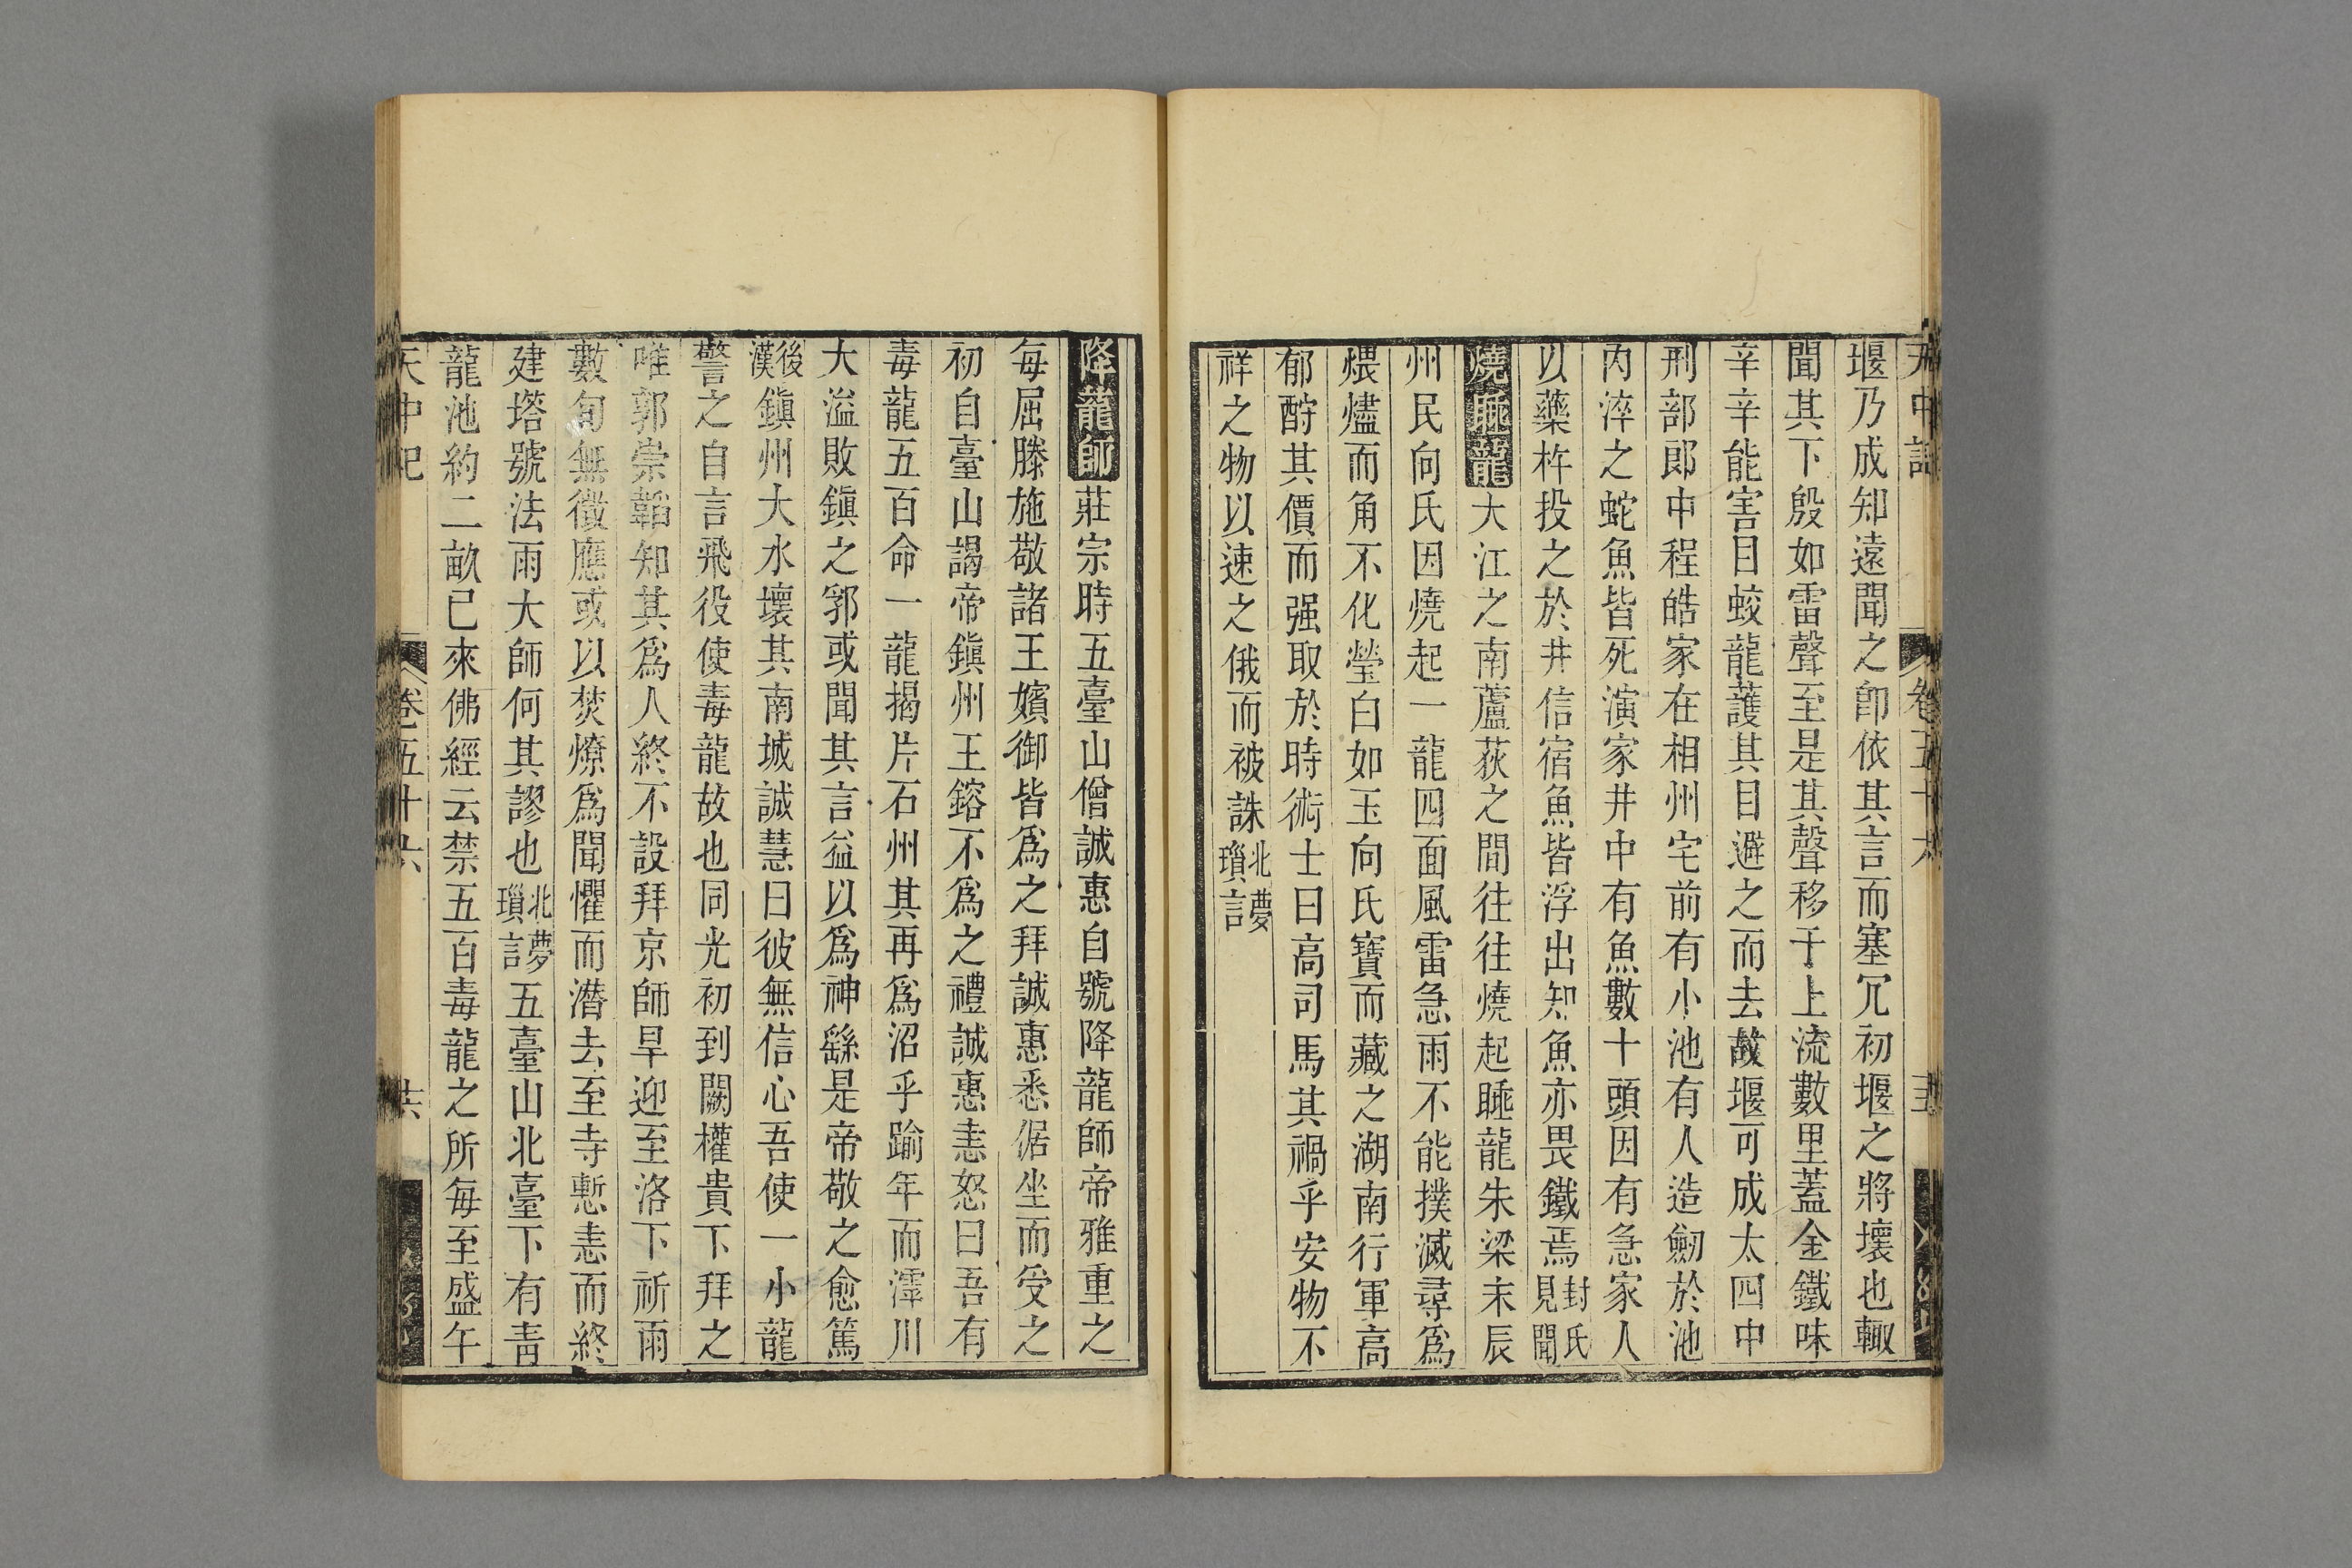 天中記
卷五十六
堰乃成知遠聞之卽依其言而塞冗初堰之將壞也輙
聞其下殷如雷聲至是其聲移于上流數里蓋金鐵味
辛辛能害目蛟龍護其目避之而去故堰可成太四中
刑部郎中程皓家在相州宅前有小池有人造劒於池
內淬之蛇魚皆死演家井中有魚數十頭因有急家人
以藥杵投之於井信宿魚皆浮出知魚亦畏鐵焉封氏見聞
燒睡龍大江之南蘆荻之間往往燒起睡龍朱梁末辰
州民向氏因燒起一龍四面風雷急雨不能撲滅尋爲
煨燼而角不化瑩白如玉向氏寶而藏之湖南行軍高
郁酧其價而强取於時術士曰高司馬其禍乎安物不
祥之物以速之俄而被誅北夢瑣言
降龍師莊宗時五臺山僧誠惠自號降龍師帝雅重之
每屈膝施敬諸王嬪御皆爲之拜誠惠悉倨坐而受之
初自臺山謁帝鎭州王鎔不爲之禮誠惠恚怒曰吾有
毒龍五百命一龍揭片石州其再爲沼乎踰年而滹川
大溢敗鎭之郛或聞其言益以爲神繇是帝敬之愈篤
後漢鎭州大水壞其南城誠慧曰彼無信心吾使一小龍
警之自言飛役使毒龍故也同光初到闕權貴下拜之
唯郭崇韜知其爲人終不設拜京師旱迎至洛下祈雨
數旬無徵應或以焚燎爲聞懼而潛去至寺慙恚而終
建塔號法雨大師何其謬也北夢瑣言五臺山北臺下有靑
龍池約二畝已來佛經云禁五百毒龍之所每至盛午
天中記
卷五十六
廿六